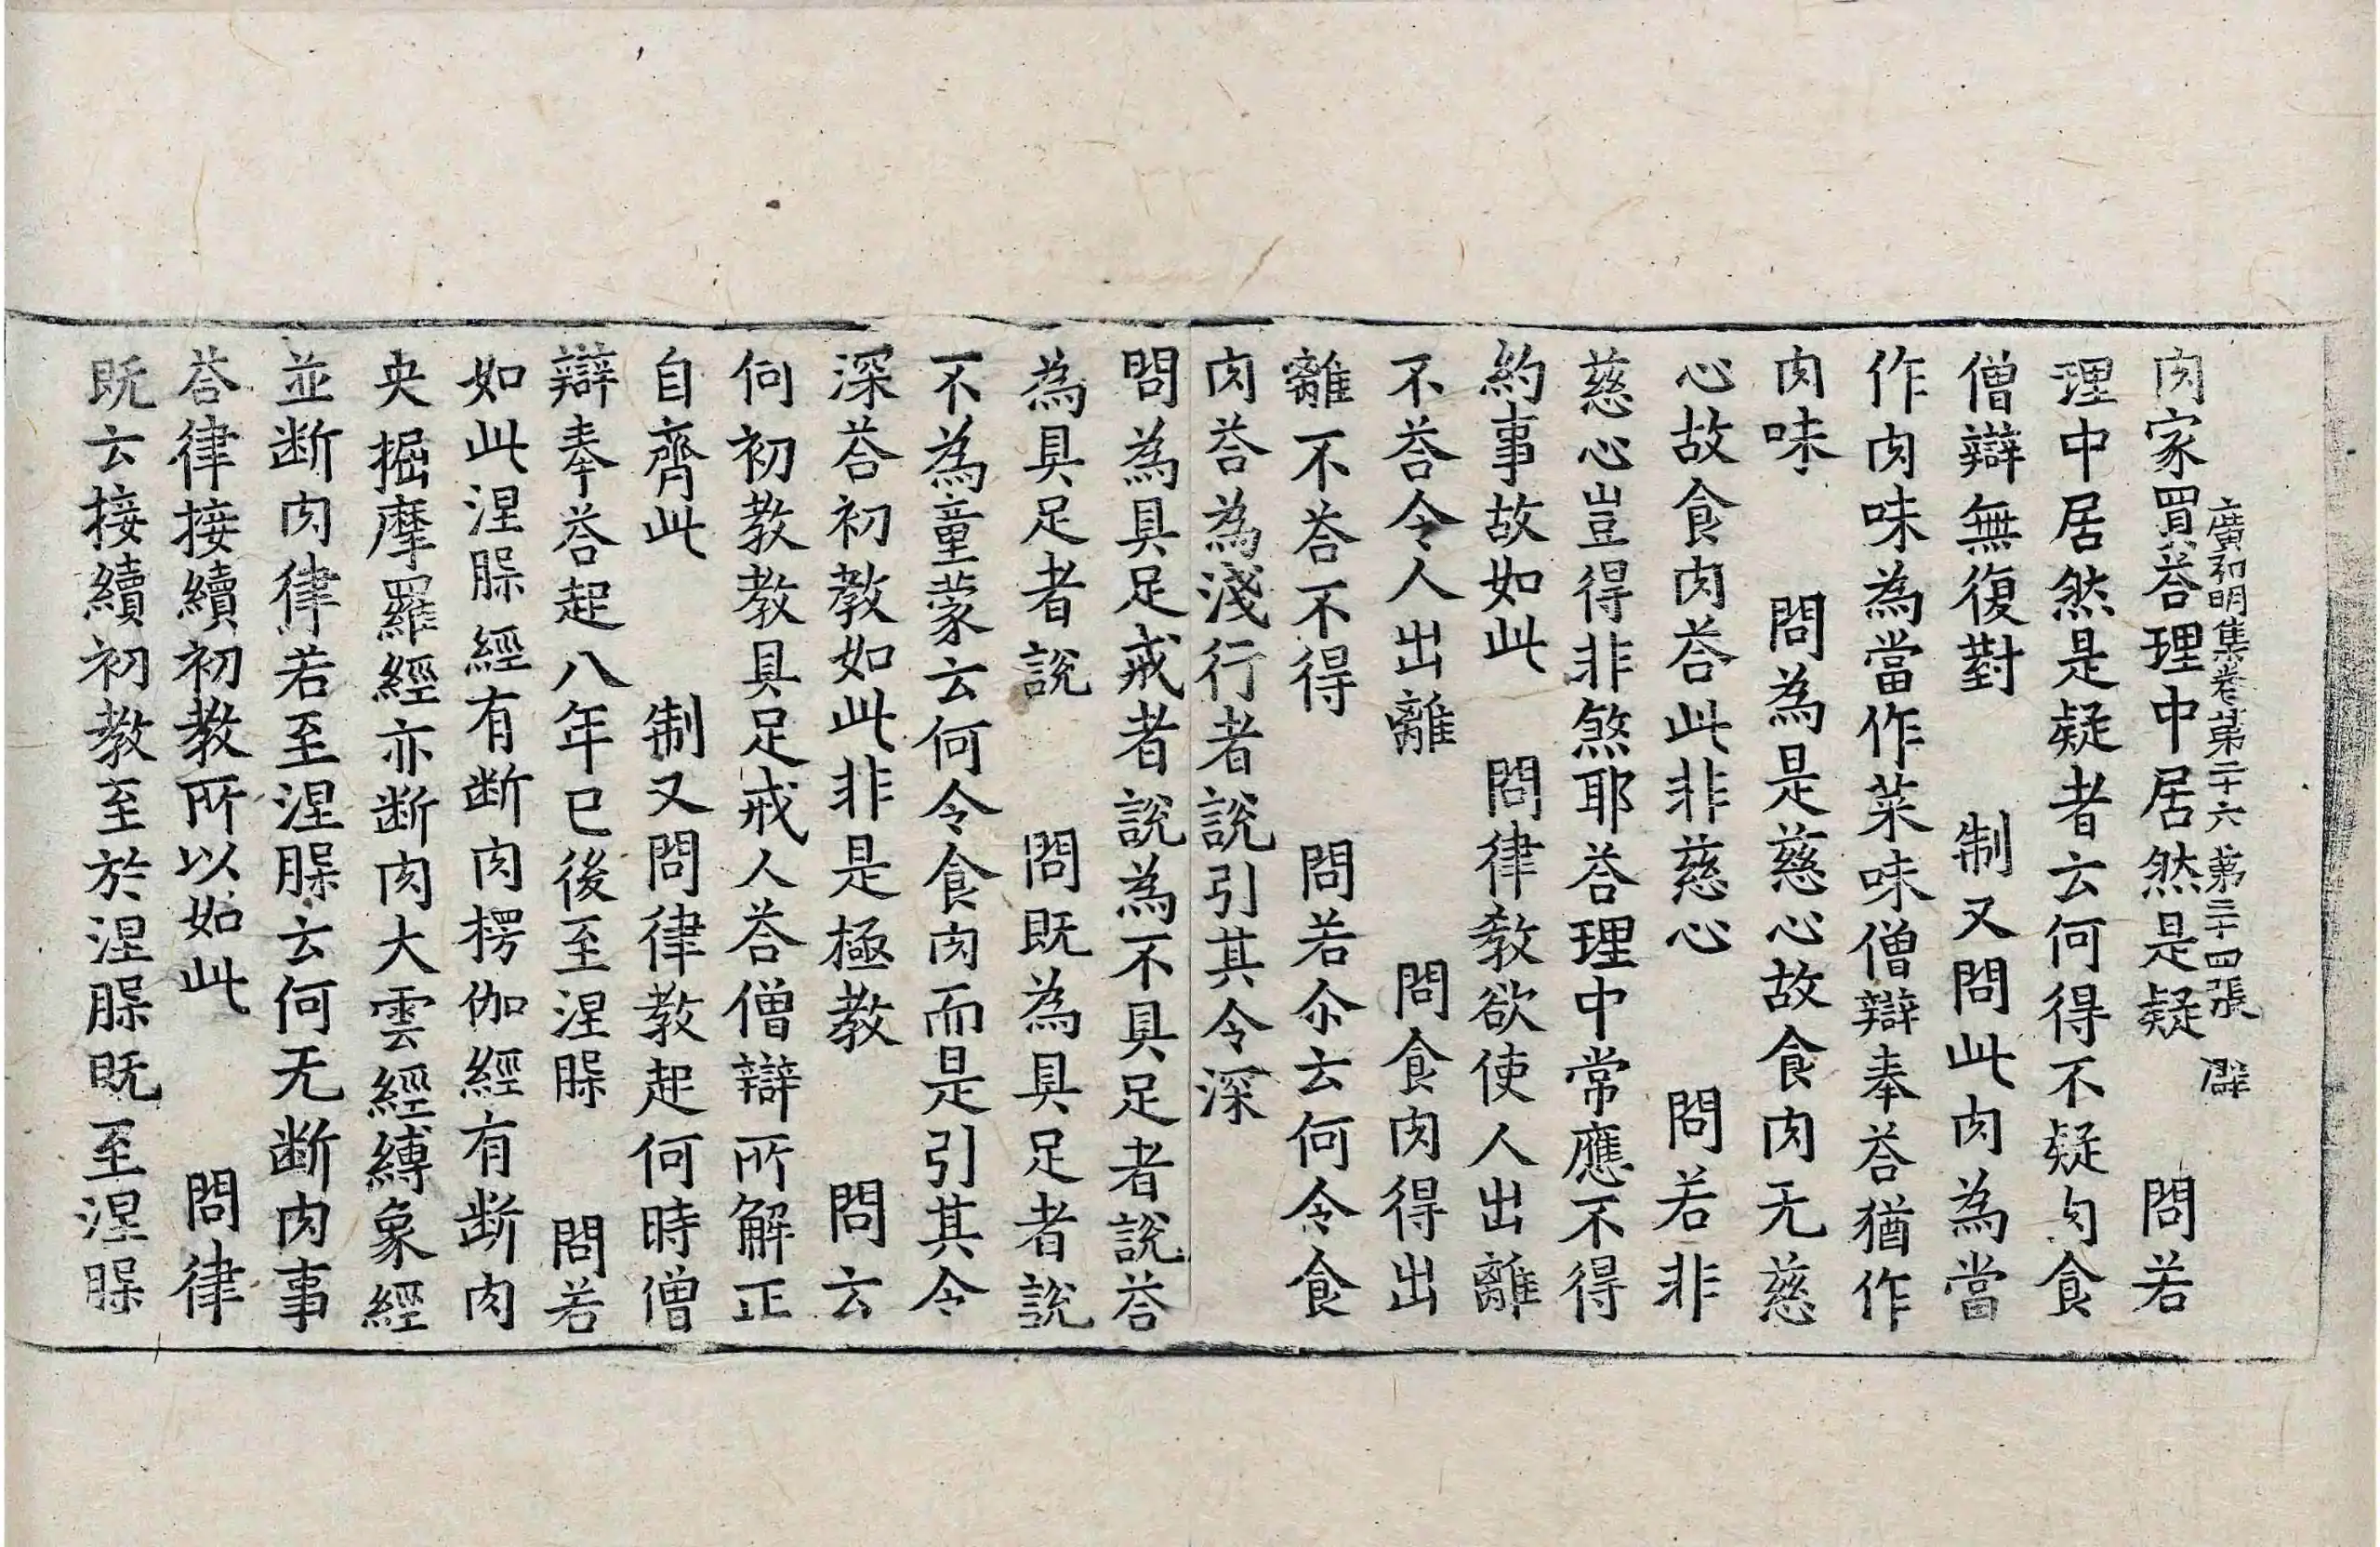 廣弘明集卷第二十六 第二十四張
肉家買荅理中居然是疑 問若
理中居然是疑者云何得不疑句食
僧辯無復對 制又問此肉為當
作肉味為當作菜味僧辯奉荅猶作
肉味 問為是慈心故食肉无慈
心故食肉荅此非慈心 問若非
慈心豈得非煞耶荅理中常應不得
約事故如此 問律教欲使人出離
不荅令人出離 問食肉得出
離不荅不得 問若尒云何令食
肉荅為淺行者說引其令深
問為具足戒者說為不具足者說荅
為具足者說 問既為具足者說
不為童蒙云何令食肉而是引其令
深荅初教如此非是極教 問云
何初教教具足戒人荅僧辯所解正
自齊此 制又問律教起何時僧
辯奉荅起八年已後至涅槃 問若
如此涅槃經有断肉楞伽經有断肉
央掘摩羅經亦断肉大雲經縛象經
並断肉律若至涅槃云何无断肉事
荅律接續初教所以如此 問律
既云接續初教至於涅槃既至涅槃